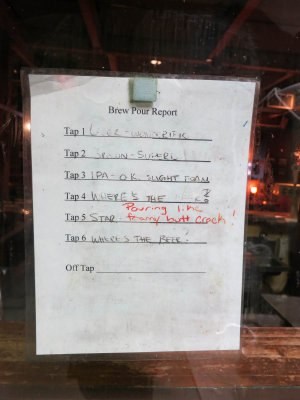 Brew Pour Report
Tap 1 LAGER - WONDERFUL
Tap 2 SAISON - SUPERB
Tap 3 IPA - O.K. SLIGHT FOAM
Tap 4 WHERE'S THE ?
Pouring like
Tap 5 STAR foamy butt crack!
Tap 6 WHERE'S THE BEER.
Off Tap